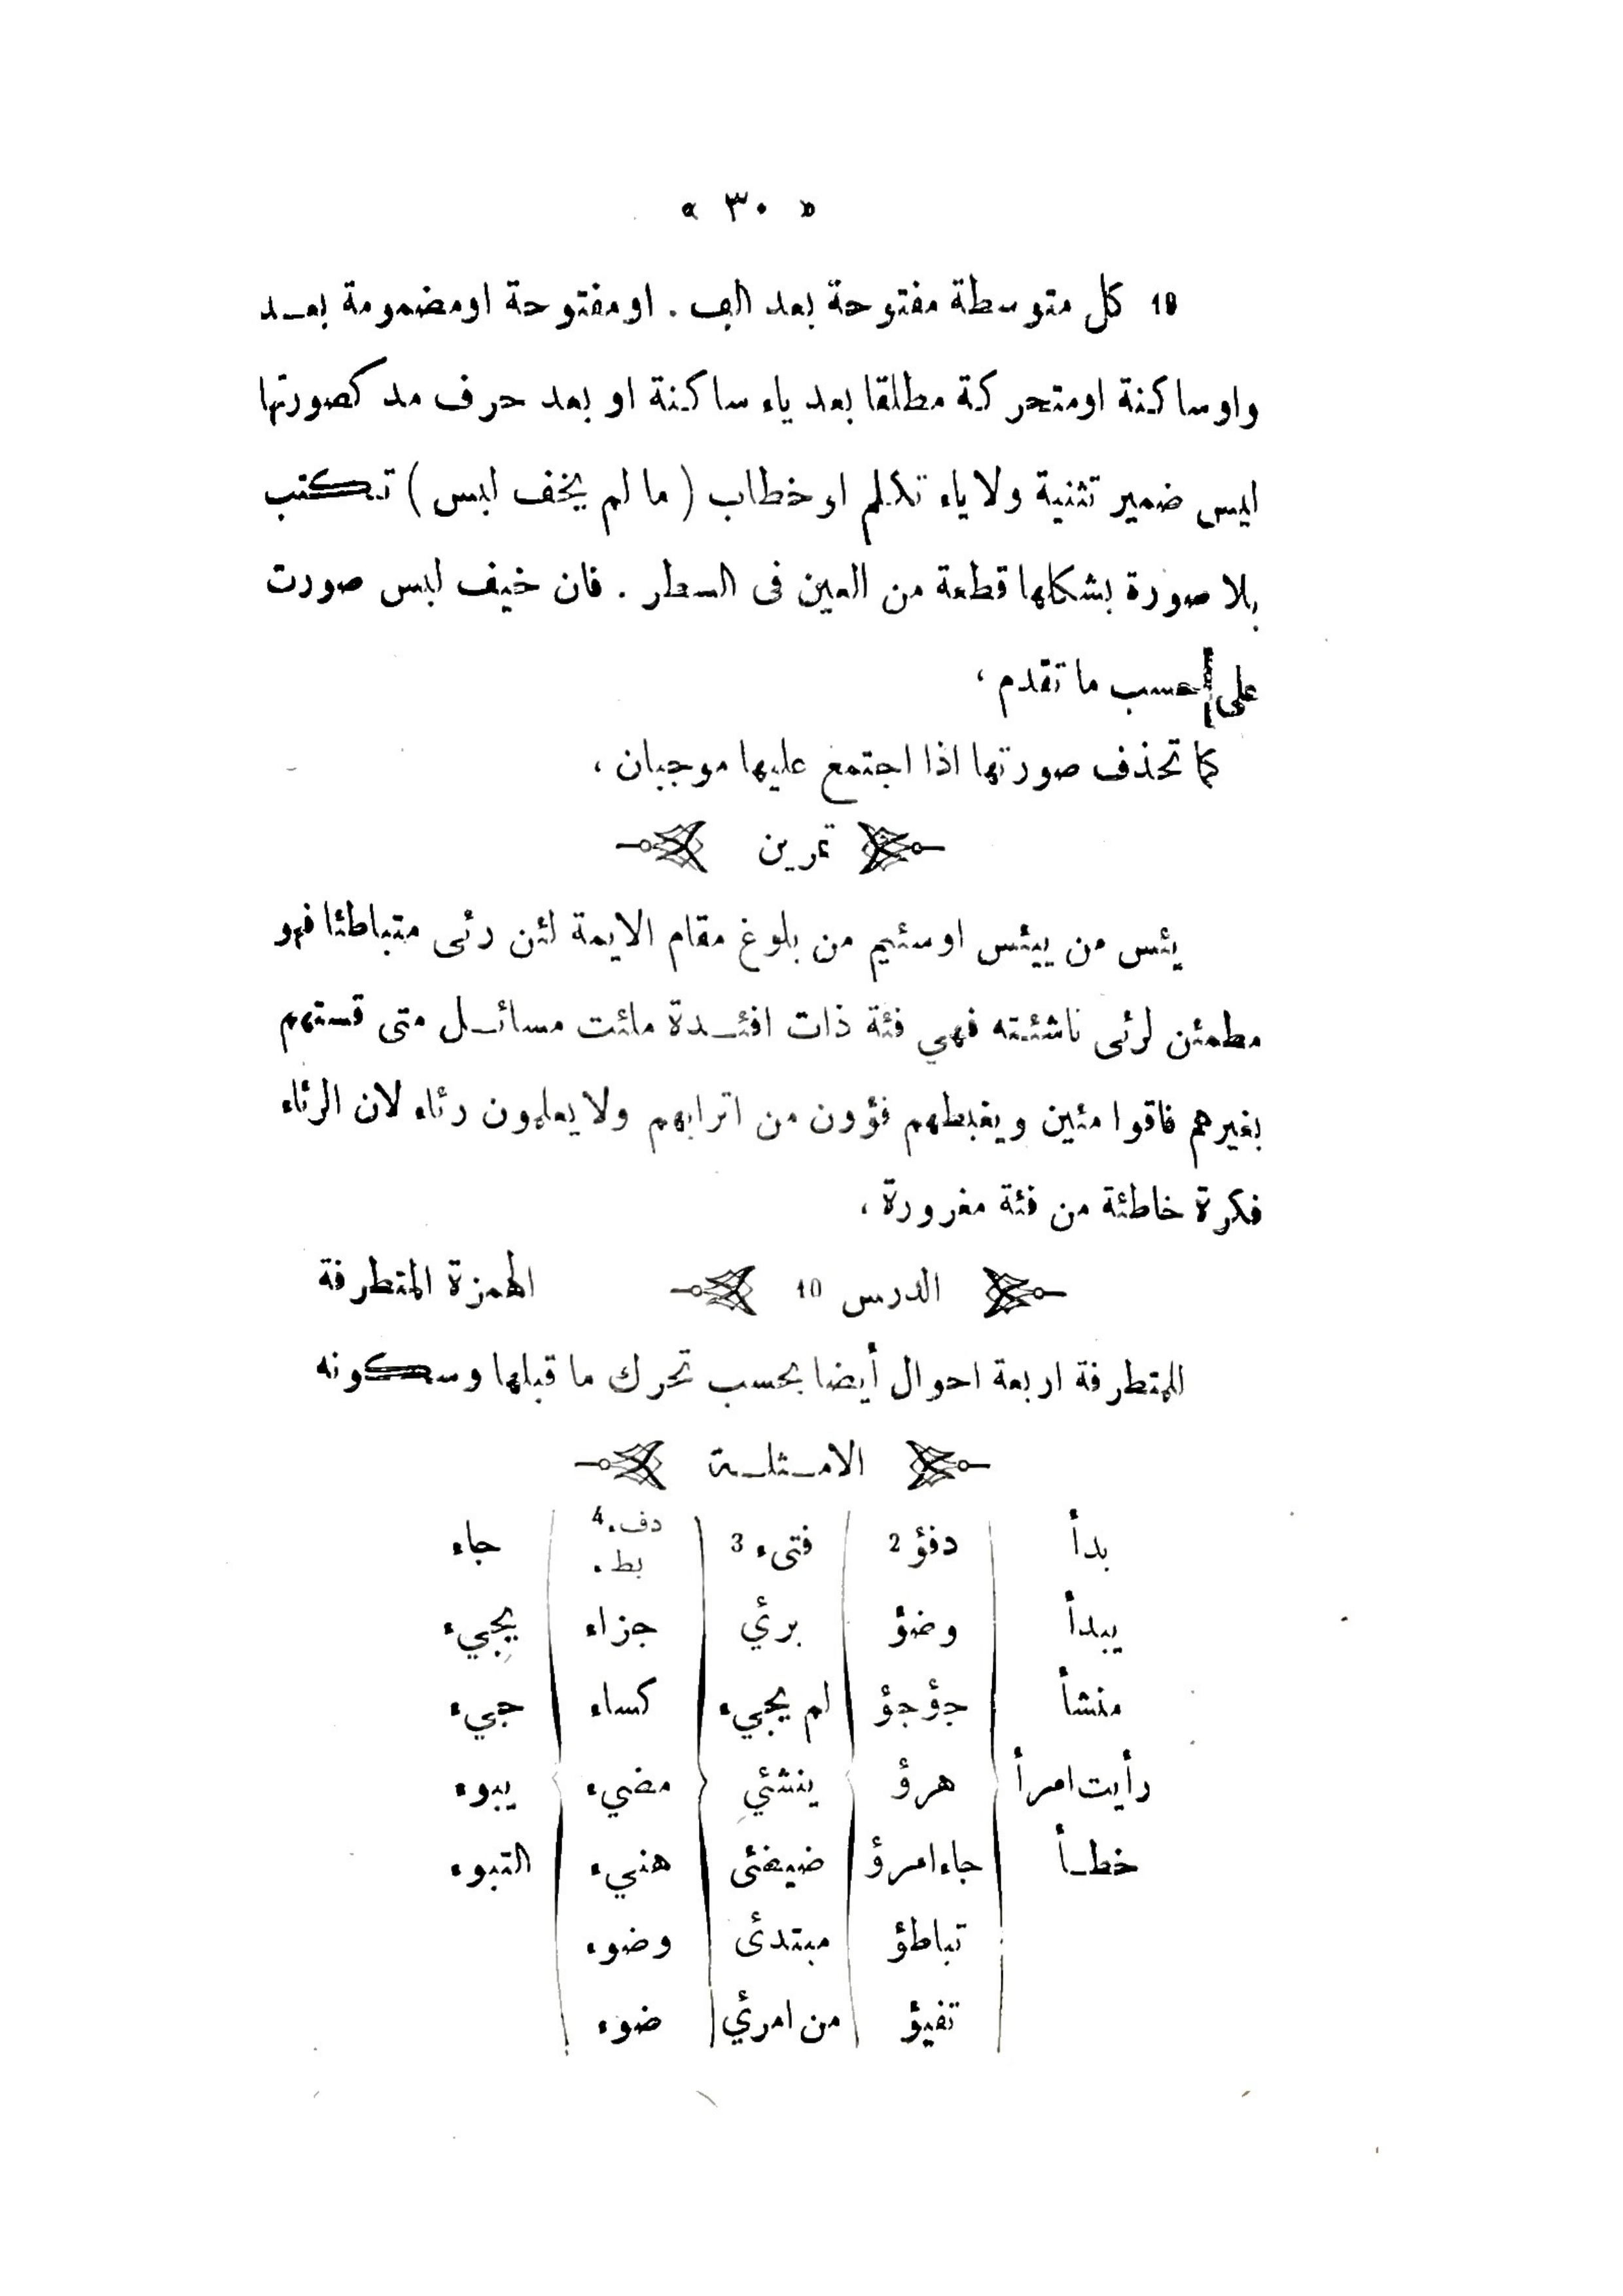 « ٣٠ »
10 كل متوسطة مفتوحة بعد الف . او مفتوحة او مضمومة بعـد
واو ساكنة او متحركة مطلقا بعد ياء ساكنة او بعد حرف مد كصورتها
ليس ضمير تثنية ولا ياء تكلم او خطاب ( ما لم يخف لبس ) تكتب
بلا صورة بشكلها قطعة من العين فى السطر . فان خيف لبس صورت
على حسب ما تقدم ،
كما تحذف صورتها اذا اجتمع عليها موجبان ،
تمرين
يئس من ييئس او سئيم من بلوغ مقام الايمة لئن رئى متباطئا فهو
مطمئن لرئى ناشئته فهي فئة ذات افئـدة ملئت مسائـل متى قستهم
بغيرهم فاقوا مئين ويغبطهم فؤون من اترابهم ولا يعلمون رئاء لان الرئاء
فكرة خاطئة من فئة مغرورة ،
الدرس 10 الهمزة المتطرفة
للمتطرفة اربعة احوال أيضا بحسب تحرك ما قبلها وسكونه
الامـثلـة
بدأ دفؤ 2 فتىء 3 دفء 4 بطء جاء
يبدأ وضؤ برئ جزاء يجيء
منشأ جؤجؤ لم يجيء كساء جيء
رأيت امرأ هرؤ ينشئ مضيء يبوء
خطـأ جاء امرؤ ضيضئ هنيء التبوء
تباطؤ مبتدئ وضوء
تفيؤ من امرئ ضوء